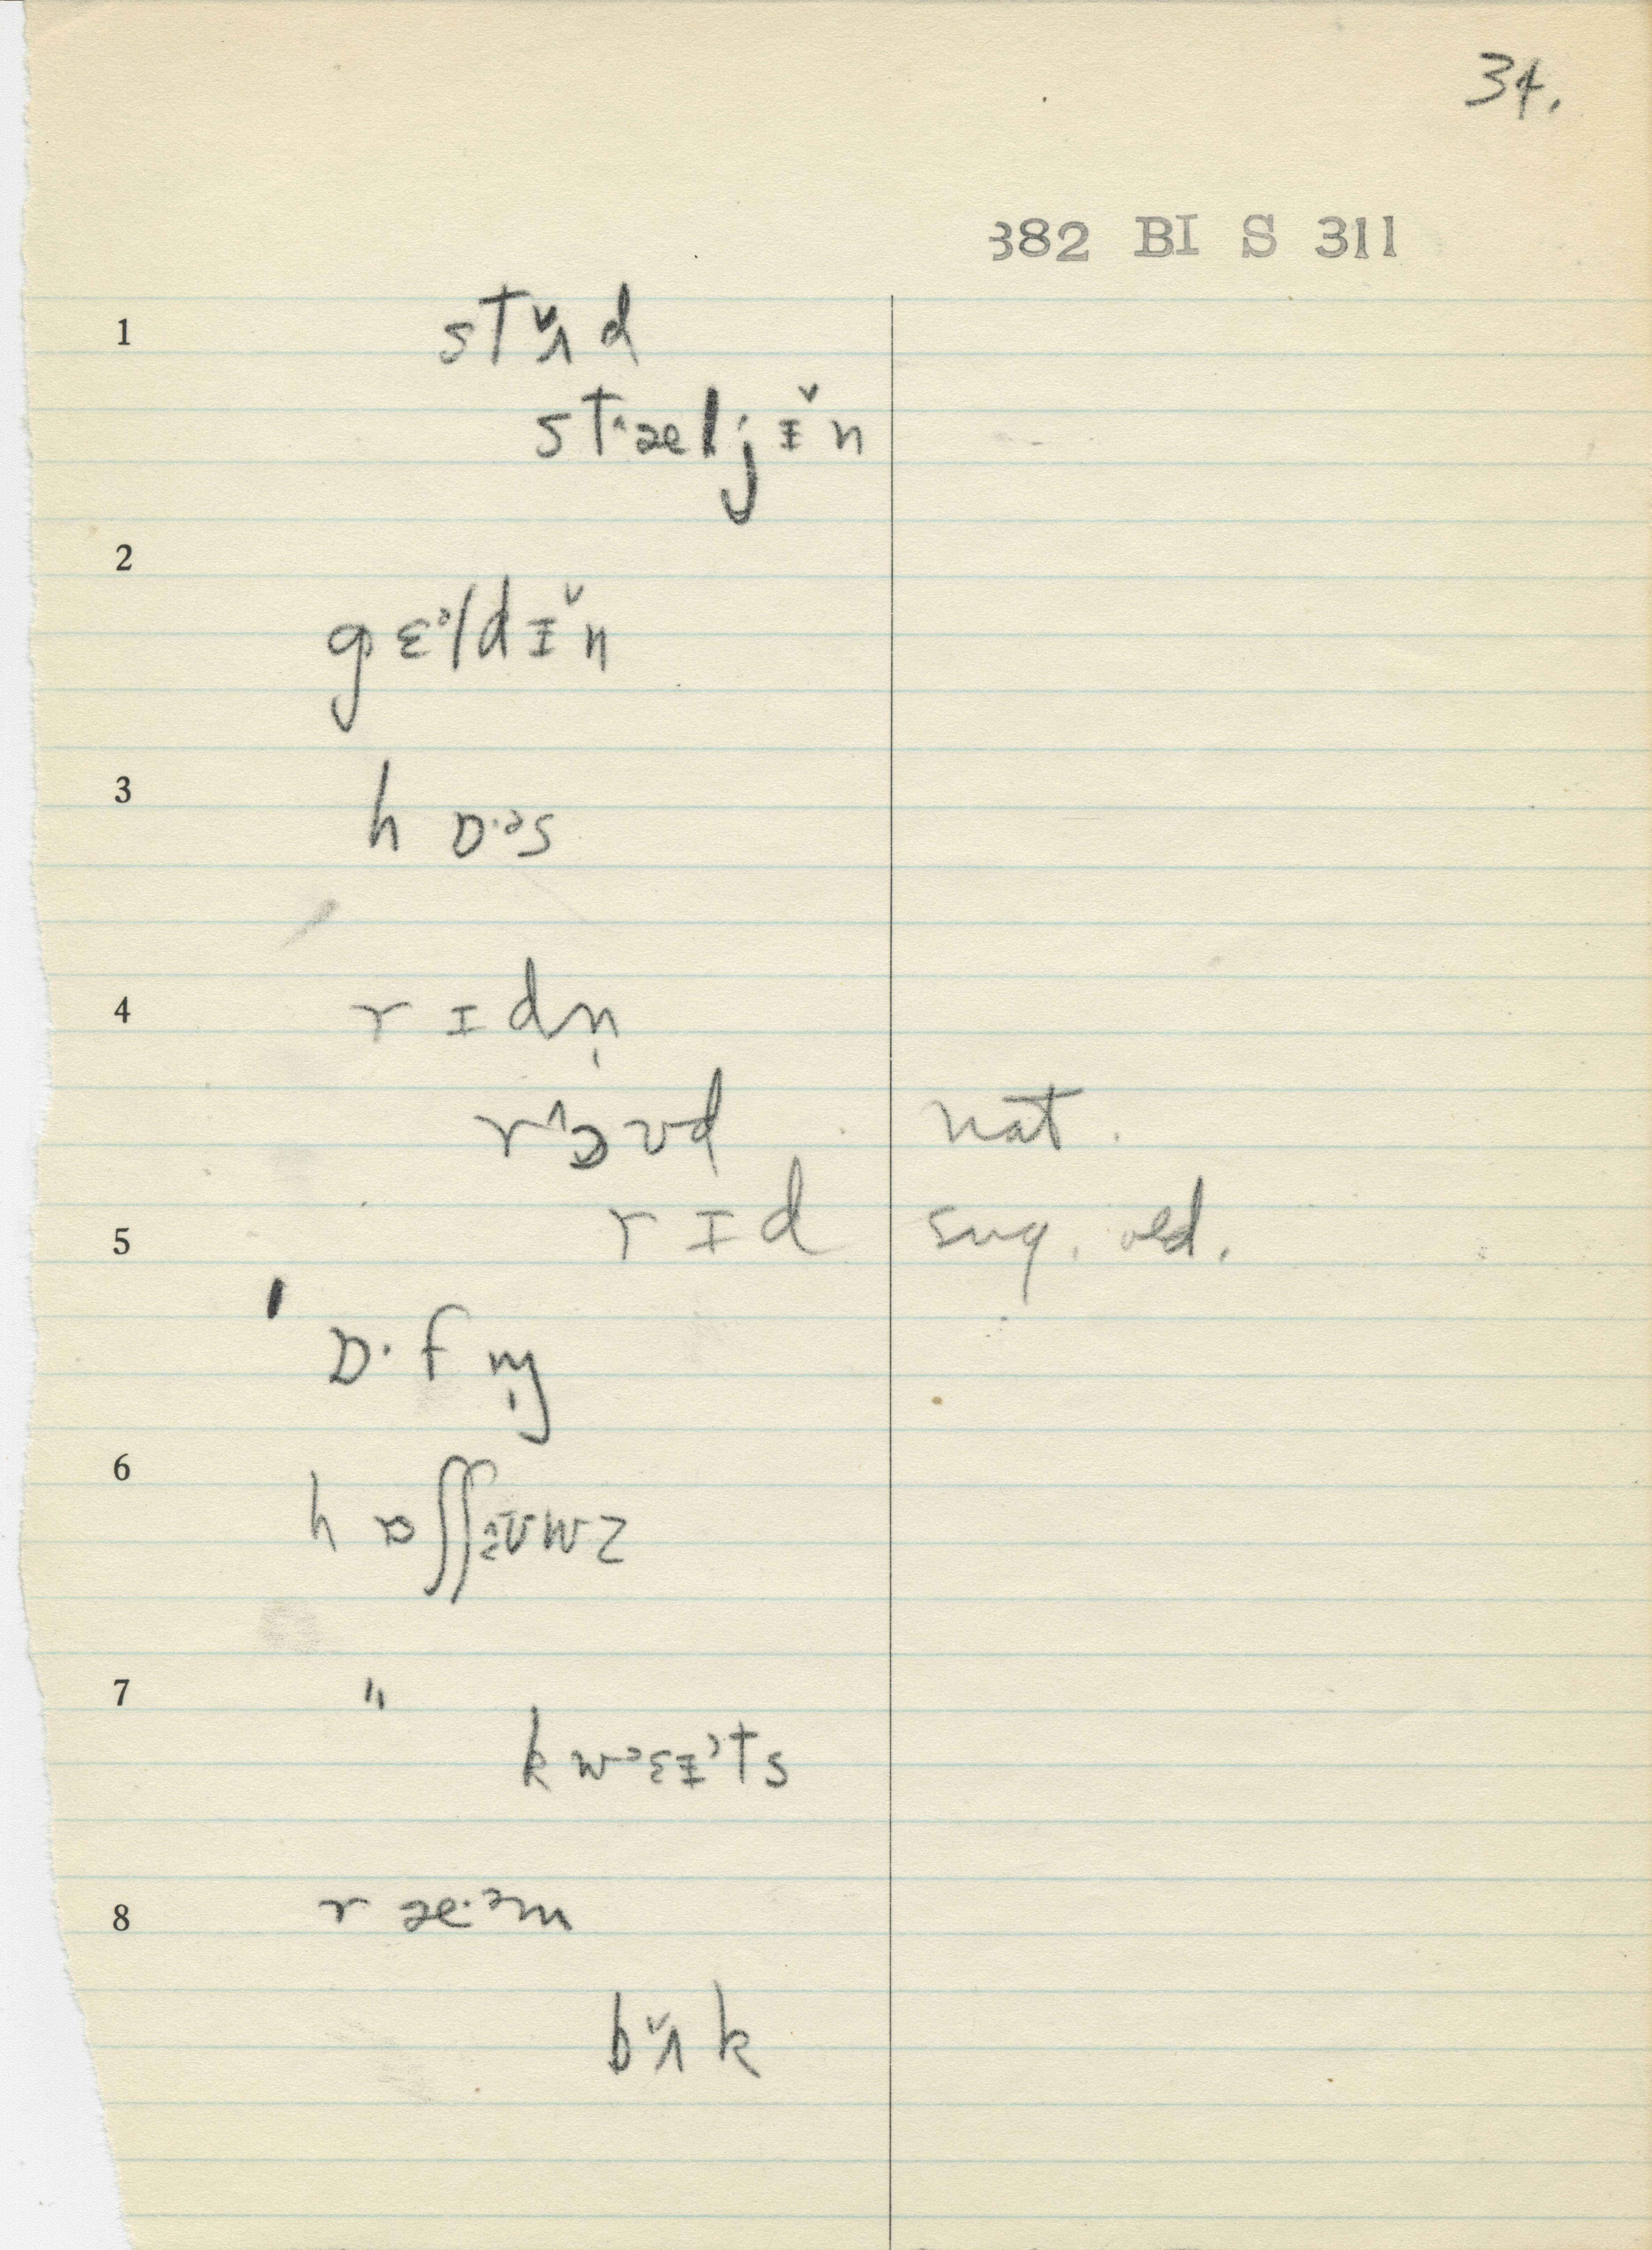 34.
382 BI S 311
1 stʌ̌d
st^æljɪ̌n
2
gɛᵊldɪ̌n
3 hɒ·ᵊs
4 rɪdn̩
r^ɔvd nat.
5 rɪd sug. old.
ˈɒ·fm̩
6 hɒʃʃ
7 " kwᵊɛɪᵊts
8 ræ·ᵊm
bʌ̌k